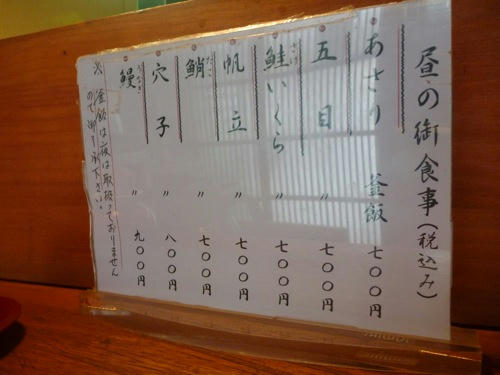 昼の御食事(税込み)
あさり 釜飯 七〇〇円
五目 〃 七〇〇円
鮭いくら 〃 七〇〇円
帆立 〃 七〇〇円
鮹 〃 七〇〇円
穴子 〃 八〇〇円
鰻 〃 九〇〇円
※釜飯は夜は取扱っておりません
ので御了承下さい。